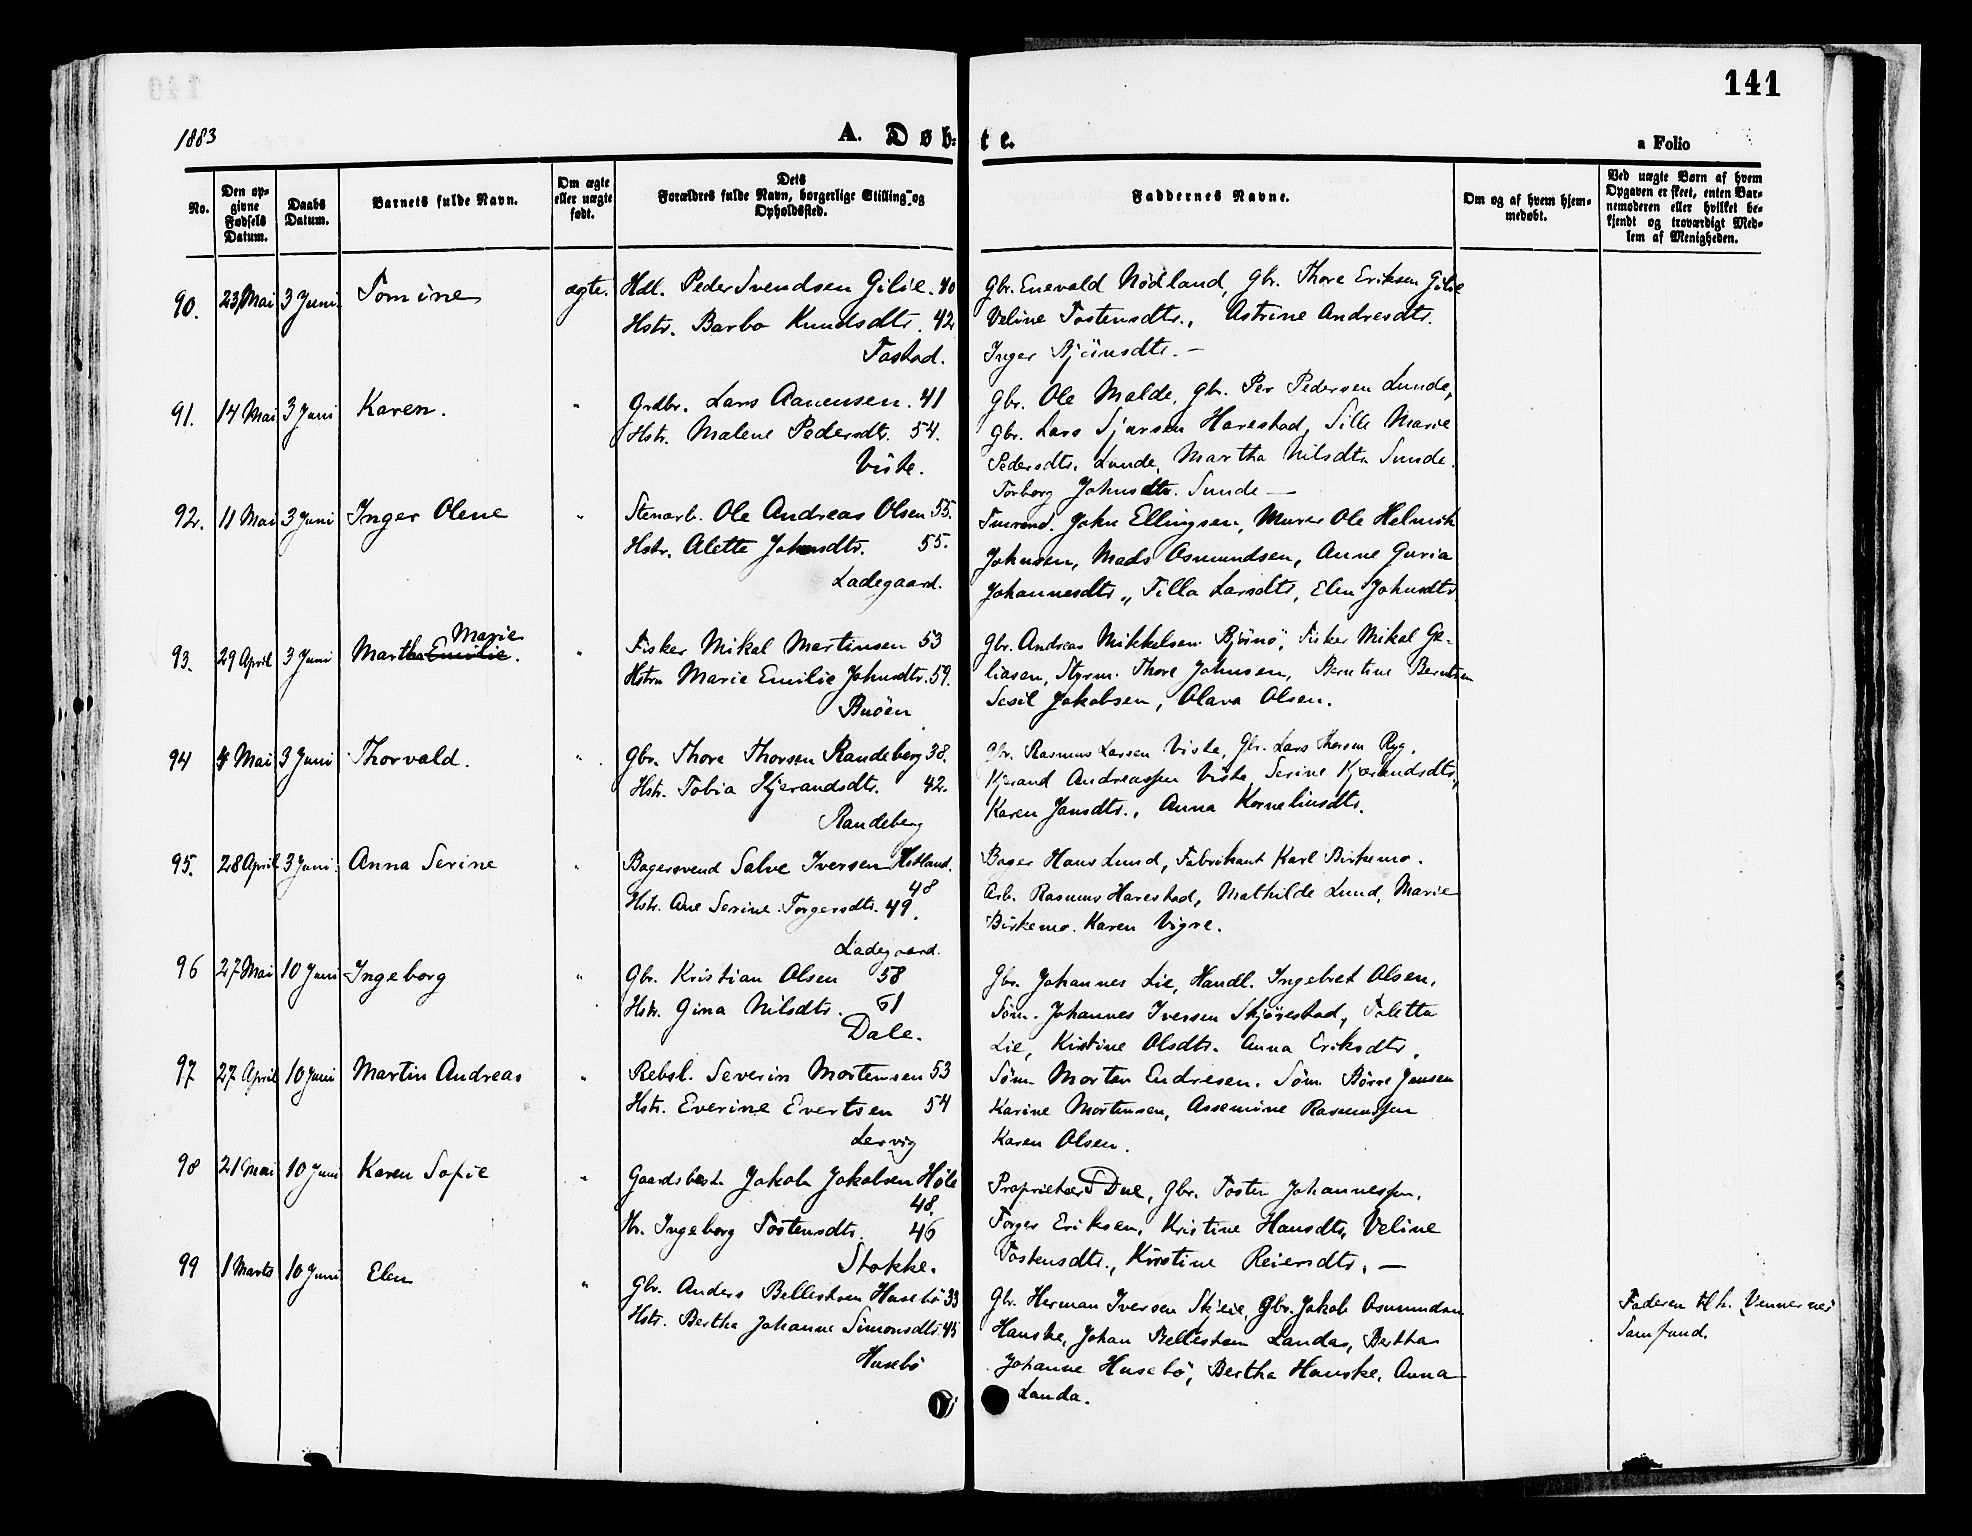 141
1883
A. Døb-te.
a Folio
No.
Den opgivne Fødsels Datum.
Daabs Datum.
Barnets fulde Navn.
Om ægte eller uægte født.
Dets Forældres fulde Navn, borgerlige Stilling og Opholdssted.
Faddernes Navne.
Om og af hvem hjemmedøbt.
Ved uægte Børn af hvem Opgaven er skeet, enten Barnemoderen eller hvilket bekjendt og troværdigt Medlem af Menigheden.
90. 23 Mai 3 Juni Tomine ægte.
Hdl. Peder Svendsen Gilje. 40
Hstr. Barbo Knudsdtr. 42
Tastad.
Gbr. Enevald Nødland, Gbr. Thore Eriksen Gilje
Veline Tostensdtr., Astrine Andresdtr.
Inger
91. 14 Mai 3 Juni Karen. "
Grdbr. Lars Aanensen. 41
Hstr. Malene Pedersdtr. 54.
Viste.
Gbr. Ole Malde, Gbr. Per Pedersen Lunde,
Gbr. Lars Harestad, Sille Marie
Pedersdtr. Lunde, Martha Nilsdtr. Sunde.
Torborg Johnsdtr. Sunde —
92. 11 Mai 3 Juni Inger Olene "
Stenarb. Ole Andreas Olsen 55.
Hstr. Alette Johnsdtr. 55.
Ladegaard.
John Ellingsen, Murer Ole Helmik
Johnsen, Mads Osmundsen, Anne Guria
Johannesdtr., Tilla Larsdtr, Elen Johnsdtr
93. 29 April 3 Juni Martha Emilie. Marie "
Fisker Mikal Martinsen 53
Hstru Marie Emilie Johnsdtr. 59.
Buøen
Gbr. Andreas Mikkelsen Bjørnø, Fisker Mikal Ge-
liasen, Styrm. Thore Johnsen, Berntine Berntsen
Sesil Jakobsen, Olava Olsen.
94 4 Mai 3 Juni Thorvald. "
Gbr. Thore Thorsen Randeberg 38.
Hstr. Tobia Kjerandsdtr. 42.
Randeberg
Gbr. Rasmus Larsen Viste, Gbr. Lars Thorsen Ryg.
Kjerand Andreassen Viste, Serine Kjerandsdtr,
Karen Jansdtr., Anna Korneliusdtr.
95. 28 April 3 Juni. Anna Serine "
Bagersvend Salve Iversen Hetland.
48
Hstr. Ane Serine Torgersdtr. 49.
Ladegaard.
Bager Hans Lund, Fabrikant Karl Birkemo.
Arb. Rasmus Harestad, Mathilde Lund, Marie
Birkemo. Karen Vigre.
96 27 Mai 10 Juni Ingeborg "
Gbr. Kristian Olsen 58
Hstr. Gina Nilsdtr. 61
Dale.
Gbr. Johannes Lie, Handl. Ingebret Olsen.
Søm. Johannes Iversen Skjørestad, Toletta
Lie, Kistine Olsdtr. Anna Eriksdtr.
97 27 April 10 Juni Martin Andreas "
Rebsl. Severin Mortensen 53
Hstr. Everine Evertsen 54
Lervig
Søm. Morten Endresen. Søm. Børre Jansen
Karine Mortensen, Assemine Rasmussen
Karen Olsen.
98 21 Mai 10 Juni Karen Sofie "
Gaardsbest. Jakob Jakobsen Høle
48.
Hr. Ingeborg Tostensdtr. 46
Stokke.
Proprietær Due, Gbr. Tosten Johannessen,
Torger Eriksen, Kristine Hansdtr, Veline
Tostensdtr., Kirstine Reiersdtr. —
99 1 Marts 10 Juni Elen "
Gbr. Anders Bellestsen Husebø 33
Hstr. Bertha Johanne Simonsdtr. 45
Husebø
Gbr. Herman Iversen Skjeie, Gbr. Jakob Osmundsen
Hanske, Johan Landas, Bertha
Johanne Husebø, Bertha Hanske. Anna
Landa.
Faderen til h. Vennernes
Samfund.